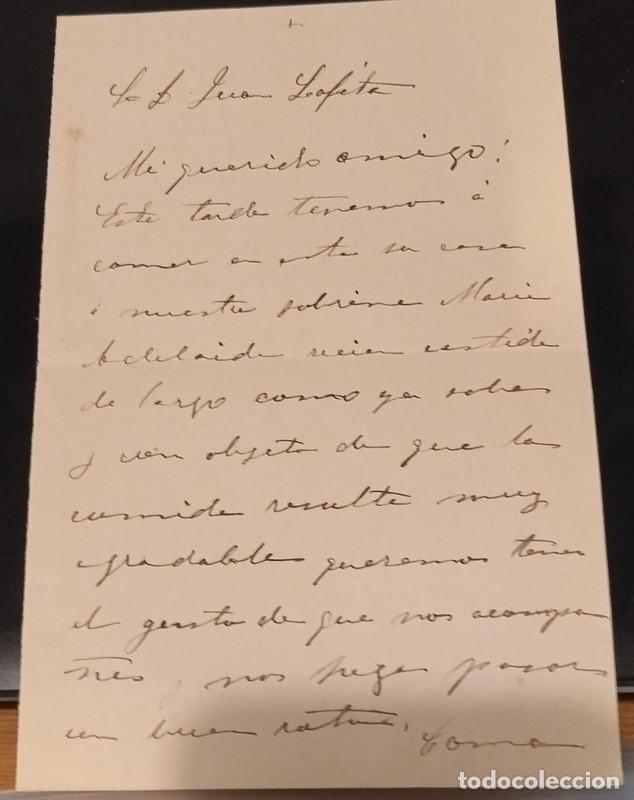 S. D. Juan Lafita
Mi querido amigo:
Esta tarde tenemos á
comer en esta su casa
á nuestra sobrina Maria
Adelaida recien vestida
de largo como ya sabes
y con objeto de que la
comida resulte muy
agradable queremos tener
el gusto de que nos acompa
ñes y nos hagas pasar
un buen rato. Como
todocoleccion